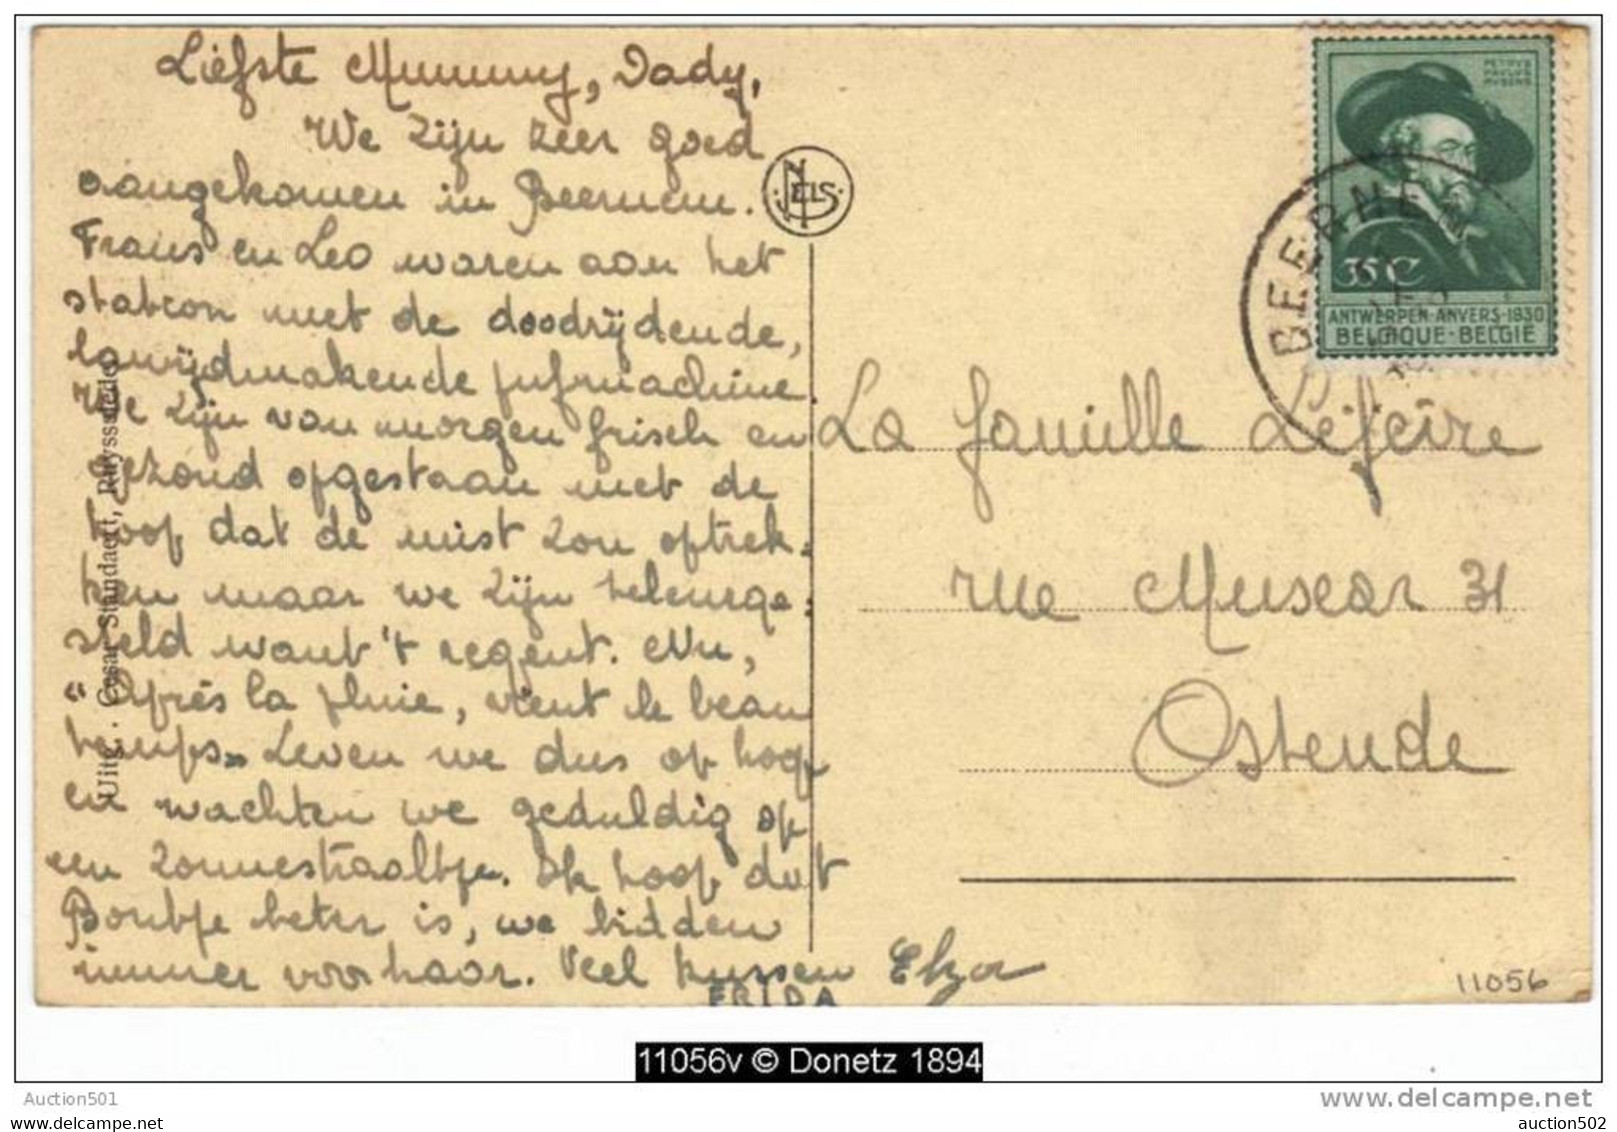 Liefste Mummy, Dady,
We zijn zeer goed
aangekomen in Beernem.
Frans en Leo waren aan het
station met de doodrijdende,
lawijdmakende pufmachine.
We zijn van morgen frisch en
gezond opgestaan met de
hoop dat de mist zou optrek-
ken maar we zijn teleurge-
steld want 't regent. Nu,
"Après la pluie, vient le beau
temps" Leven we dus op hoop
en wachten we geduldig op
een zonnestraaltje. Ik hoop dat
Boubtje beter is, we bidden
immer voor haar. Veel kussen Elza
FRIDA
Uitg. Cesar Standaert, Ruysselede
NELS
PETRVS
PAVLVS
RVBENS
35 C
ANTWERPEN-ANVERS-1930
BELGIQUE-BELGIË
BEERNEM
La famille Lefeire
rue Musear 31
Ostende
11056
11056v © Donetz 1894
Auction501
www.delcampe.net
auction502